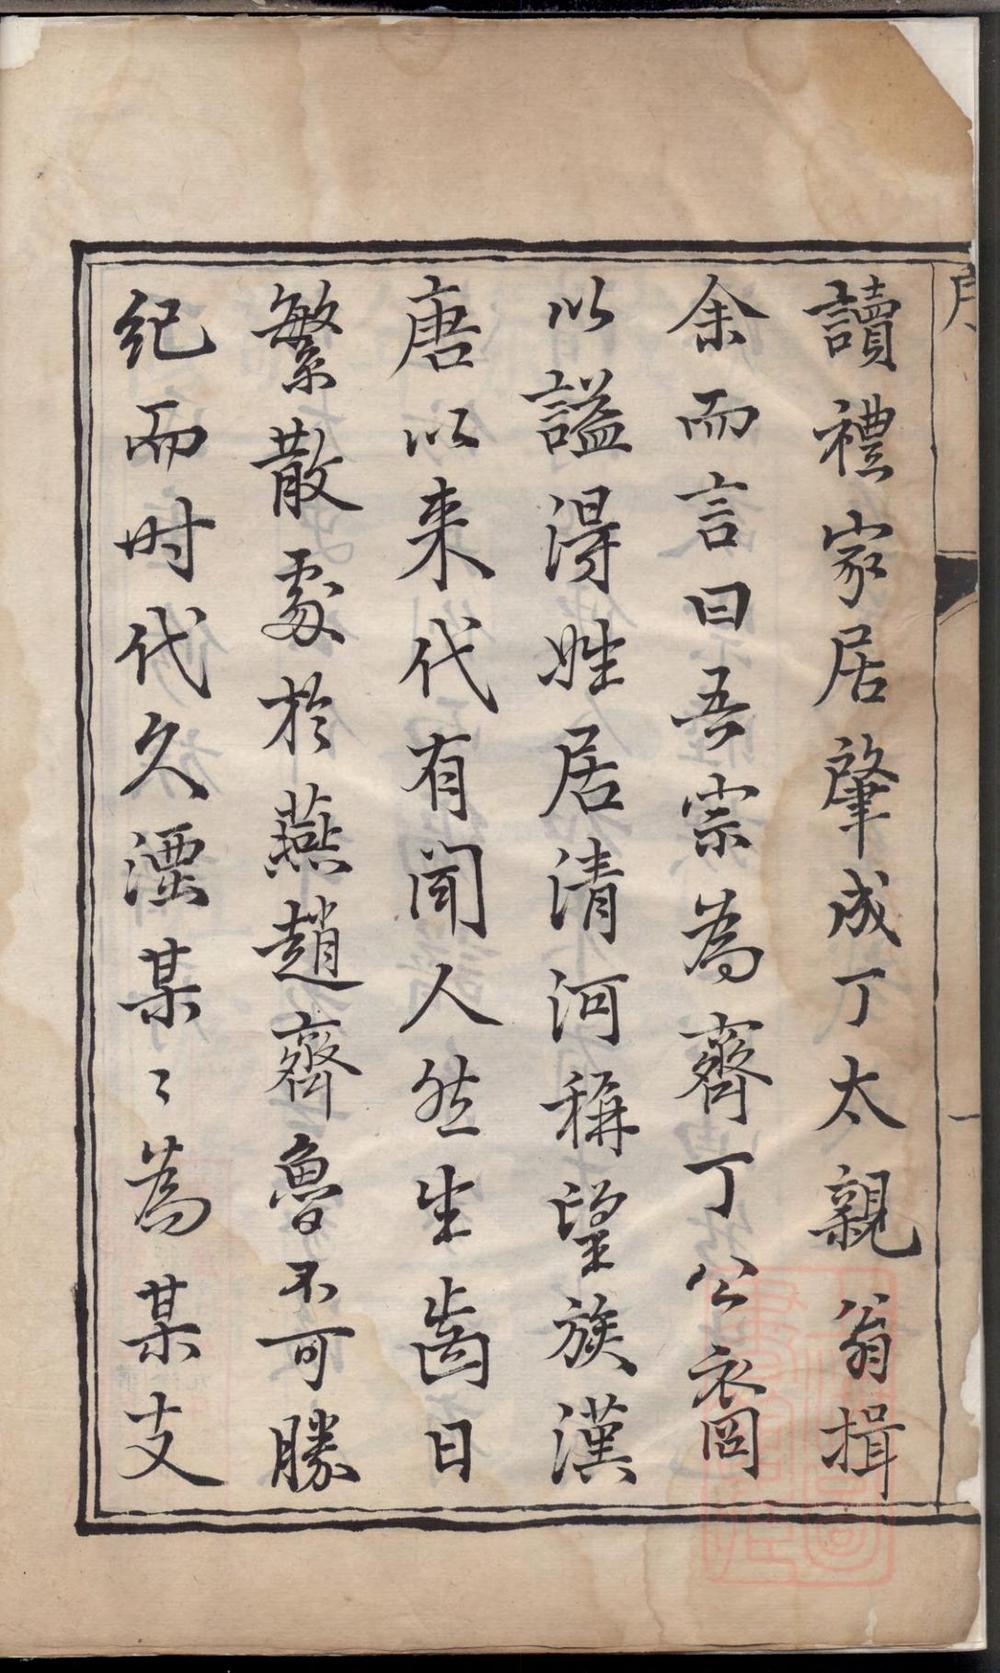 序
一
讀禮家居肇成丁太親翁揖
余而言曰吾宗為齊丁公衣岡
以謚得姓居清河稱望族漢
唐以来代有聞人然生齒日
繁散處於燕趙齊魯不可勝
紀而时代久湮某〻為某支